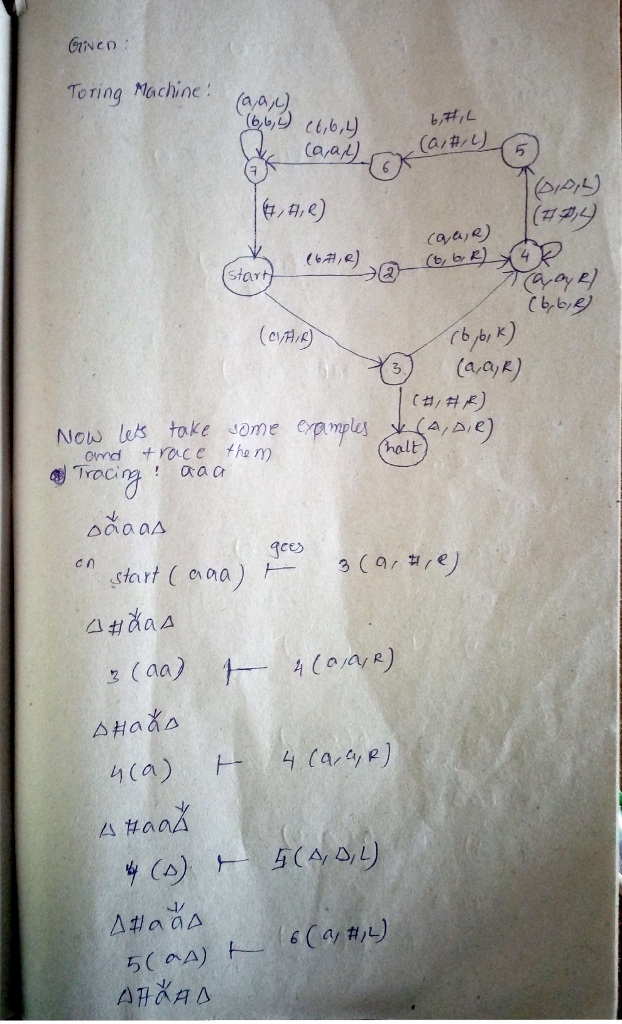 Given :
Toring Machine :
(a,a,L)
(b,b,L)
(b,b,L)
(a,a,L)
b,#,L
(a,#,L)
7
6
5
(#,#,R)
(Δ,Δ,L)
(#,#,L)
start
(b,#,R)
2
(a,a,R)
(b,b,R)
4
(a,a,R)
(b,b,R)
(a,#,R)
3
(b,b,R)
(a,a,R)
(#,#,R)
(Δ,Δ,R)
halt
Now lets take some examples
and trace them
Tracing : aaa
ΔaaaΔ
on start (aaa) ⊢ goes 3 (a,#,R)
Δ#aaΔ
3 (aa) ⊢ 4 (a,a,R)
Δ#aaΔ
4(a) ⊢ 4 (a,a,R)
Δ#aaΔ
4 (Δ) ⊢ 5(Δ,Δ,L)
Δ#aaΔ
5(aΔ) ⊢ 6(a,#,L)
Δ#a#Δ